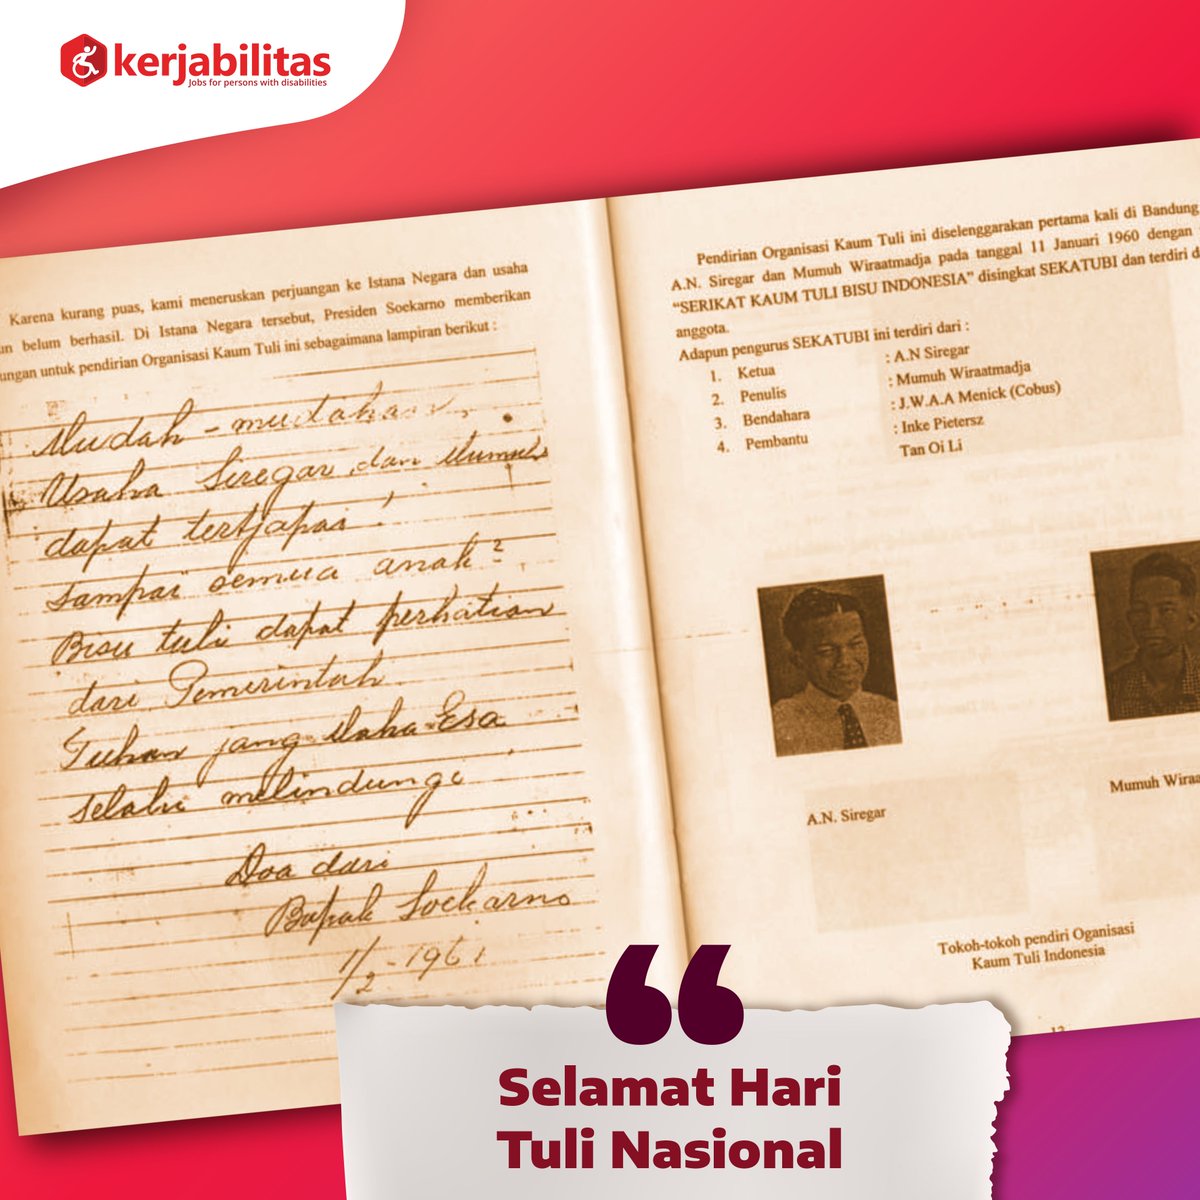 kerjabilitas
Jobs for persons with disabilities
Karena kurang puas, kami meneruskan perjuangan ke Istana Negara dan usaha
un belum berhasil. Di Istana Negara tersebut, Presiden Soekarno memberikan
ungan untuk pendirian Organisasi Kaum Tuli ini sebagaimana lampiran berikut :
Mudah-mudahan
Usaha Siregar dan Mumuh
dapat tertjapai!
sampai semua anak2
Bisu tuli dapat perhatian
dari Pemerintah.
Tuhan jang Maha Esa
selalu melindungi
Doa dari
Bapak Soekarno
1/2-1961
Pendirian Organisasi Kaum Tuli ini diselenggarakan pertama kali di Bandung
A.N. Siregar dan Mumuh Wiraatmadja pada tanggal 11 Januari 1960 dengan
“SERIKAT KAUM TULI BISU INDONESIA” disingkat SEKATUBI dan terdiri d
anggota.
Adapun pengurus SEKATUBI ini terdiri dari :
1. Ketua : A.N Siregar
2. Penulis : Mumuh Wiraatmadja
3. Bendahara : J.W.A.A Menick (Cobus)
4. Pembantu : Inke Pietersz
Tan Oi Li
A.N. Siregar
Mumuh Wiraa
Tokoh-tokoh pendiri Oganisasi
Kaum Tuli Indonesia
“
Selamat Hari
Tuli Nasional